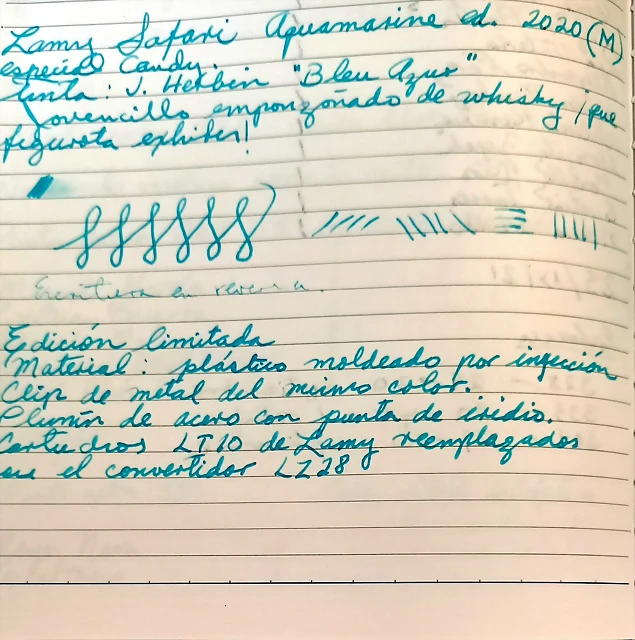 Lamy Safari Aquamarine ed. 2020 (M)
especial Candy.
Tinta: J. Herbin "Bleu Azur"
Jovencillo emponzoñado de whisky ¡que
figurota exhibes!
Escritura en reversa.
Edición limitada
Material: plástico moldeado por inyección
Clip de metal del mismo color.
Plumín de acero con punta de iridio.
Cartuchos LT10 de Lamy reemplazados
el convertidor LZ28